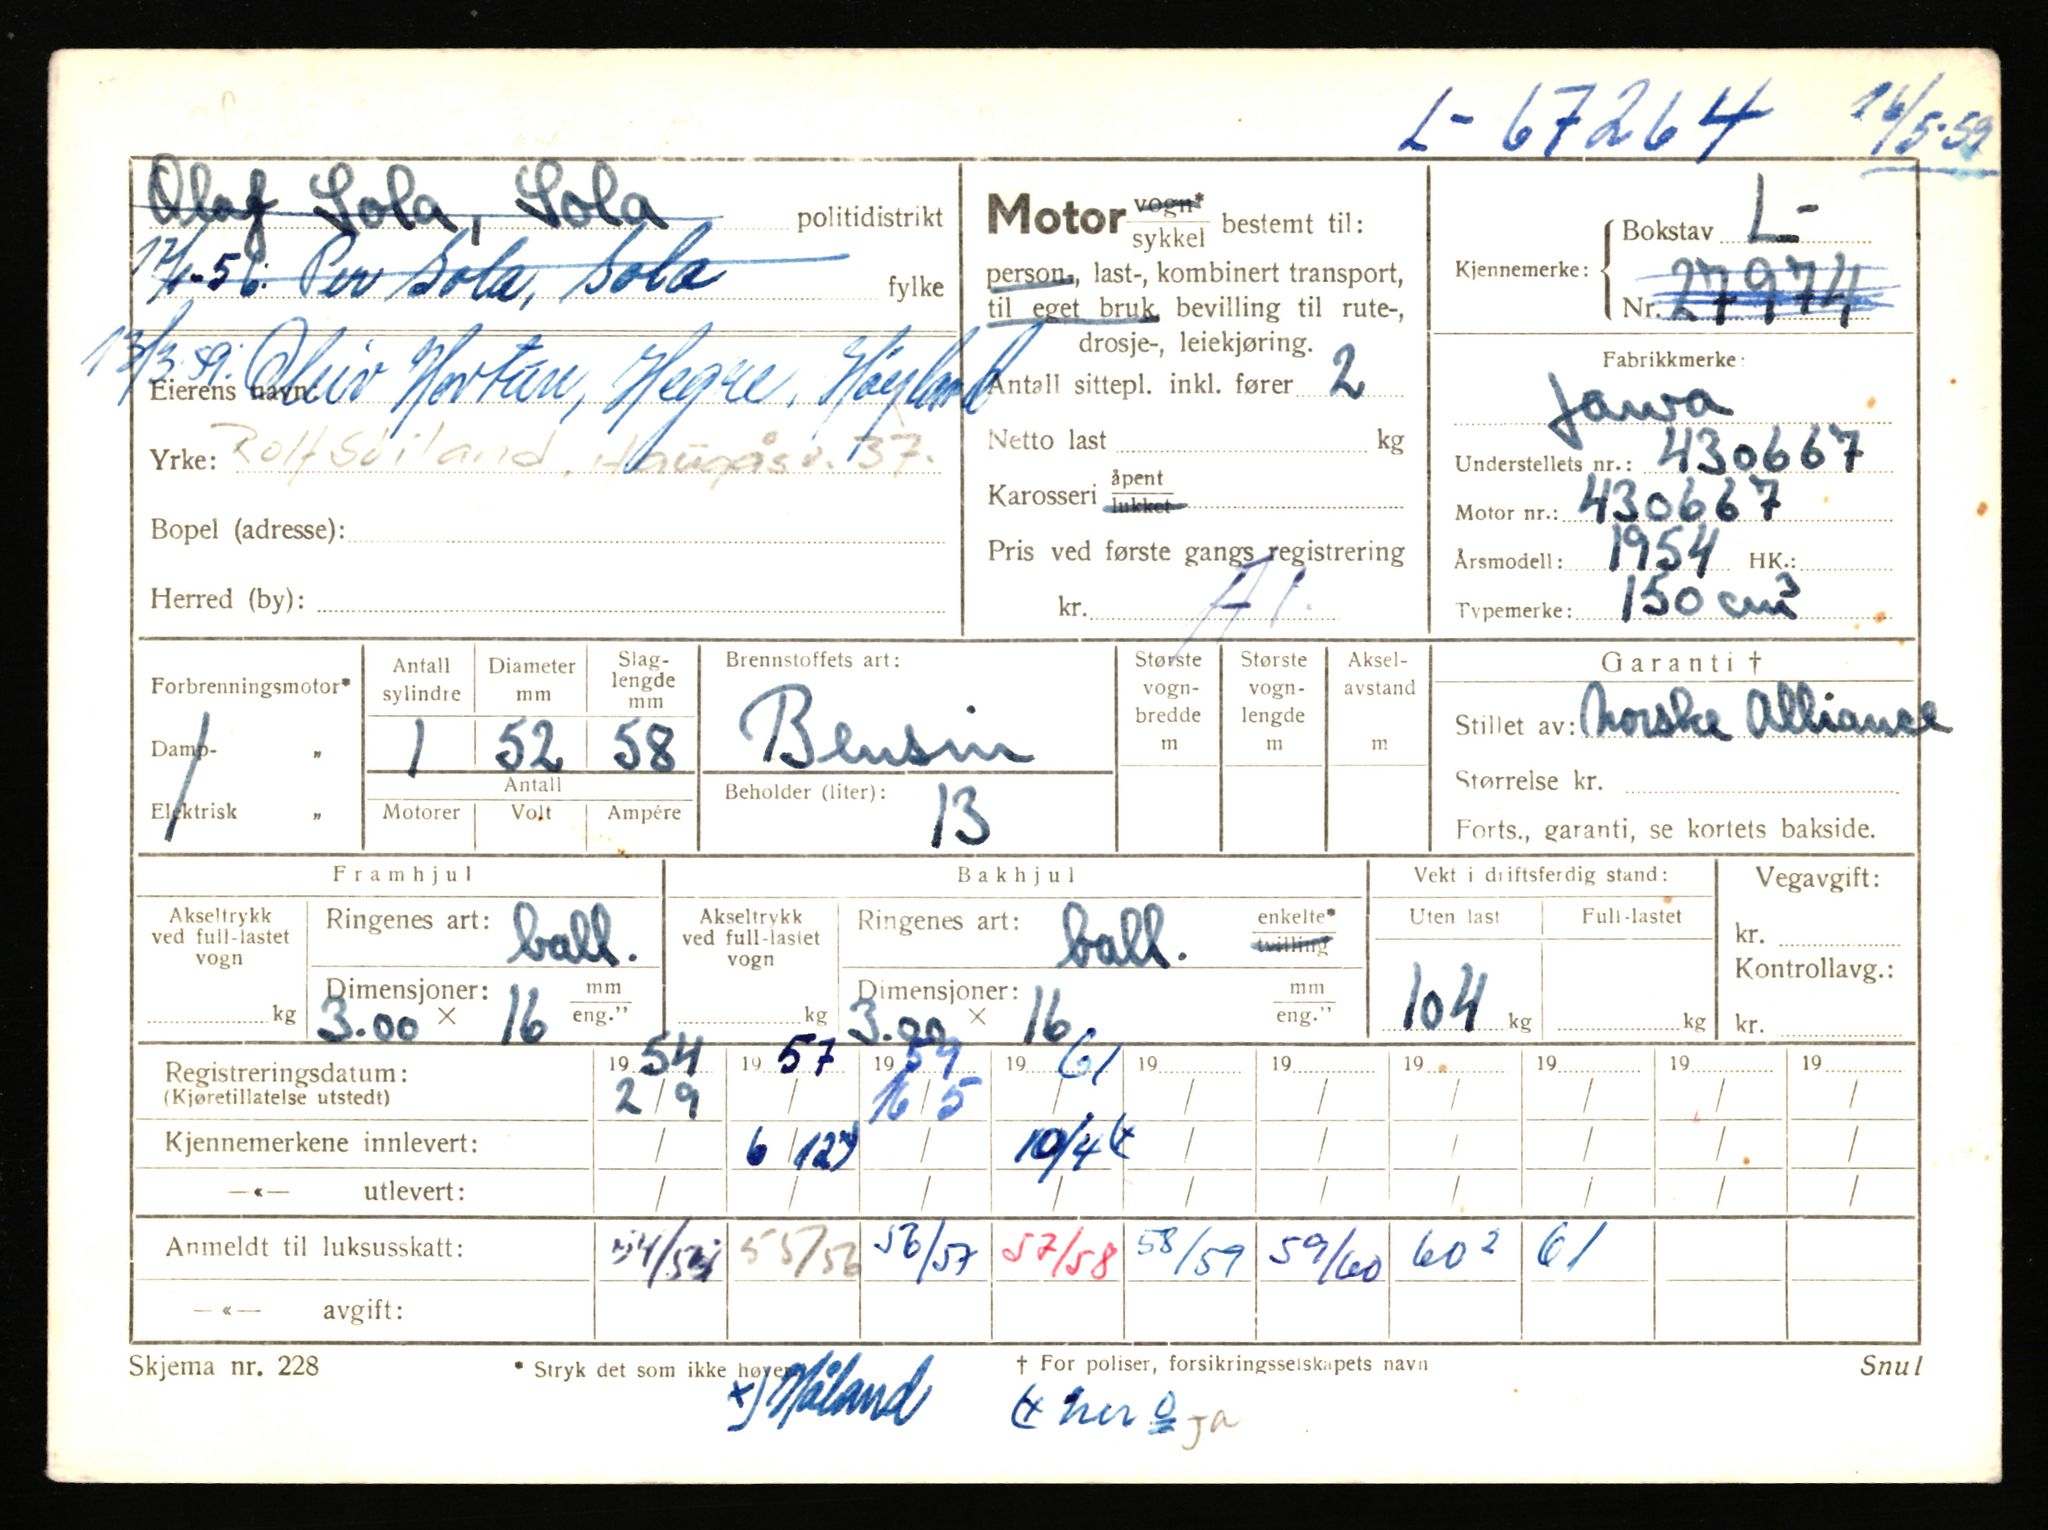 L- 67264 16/5-59
Olaf Sola, Sola politidistrikt
17/1-56: Per Sola, Sola fylke
13/3.59: Hortun, Hegre, Høyland
Eierens navn:
Yrke: Rolf Sviland, Haugåsv. 37.
Bopel (adresse):
Herred (by):
Motor vogn* sykkel bestemt til:
person-, last-, kombinert transport,
til eget bruk, bevilling til rute-,
drosje-, leiekjøring.
Antall sittepl. inkl. fører 2
Netto last kg
Karosseri åpent lukket
Pris ved første gangs registrering
kr. A1.
Kjennemerke: Bokstav L-
Nr. 27974
Fabrikkmerke:
Jawa
Understellets nr.: 430667
Motor nr.: 430667
Årsmodell: 1954 HK.:
Typemerke: 150 cm³
Forbrenningsmotor*
Damp- „
Elektrisk „
Antall sylindre Diameter mm Slag-lengde mm
1 52 58
Antall
Motorer Volt Ampére
Brennstoffets art:
Bensin
Beholder (liter): 13
Største vogn-bredde m
Største vogn-lengde m
Aksel-avstand m
Garanti †
Stillet av: Norske Alliance
Størrelse kr.
Forts., garanti, se kortets bakside.
Framhjul
Akseltrykk ved full-lastet vogn kg
Ringenes art: ball.
Dimensjoner: mm eng."
3.00 × 16
Bakhjul
Akseltrykk ved full-lastet vogn kg
Ringenes art: ball. enkelte* tvilling
Dimensjoner: mm eng."
3.00 × 16
Vekt i driftsferdig stand:
Uten last Full-lastet
104 kg kg
Vegavgift:
kr.
Kontrollavg.:
kr.
Registreringsdatum: 1954 1957 1959 1961 19 19 19 19 19 19
(Kjøretillatelse utstedt) 2/9 / 16/5 / / / / / / /
Kjennemerkene innlevert: / 6/12 x) / 10/4 (x / / / / / /
—«— utlevert: / / / / / / / / / /
Anmeldt til luksusskatt: 54/55 55/56 56/57 57/58 58/59 59/60 60² 61
—«— avgift:
Skjema nr. 228 * Stryk det som ikke høver † For poliser, forsikringsselskapets navn Snul
x) Håland (x her 0 ja